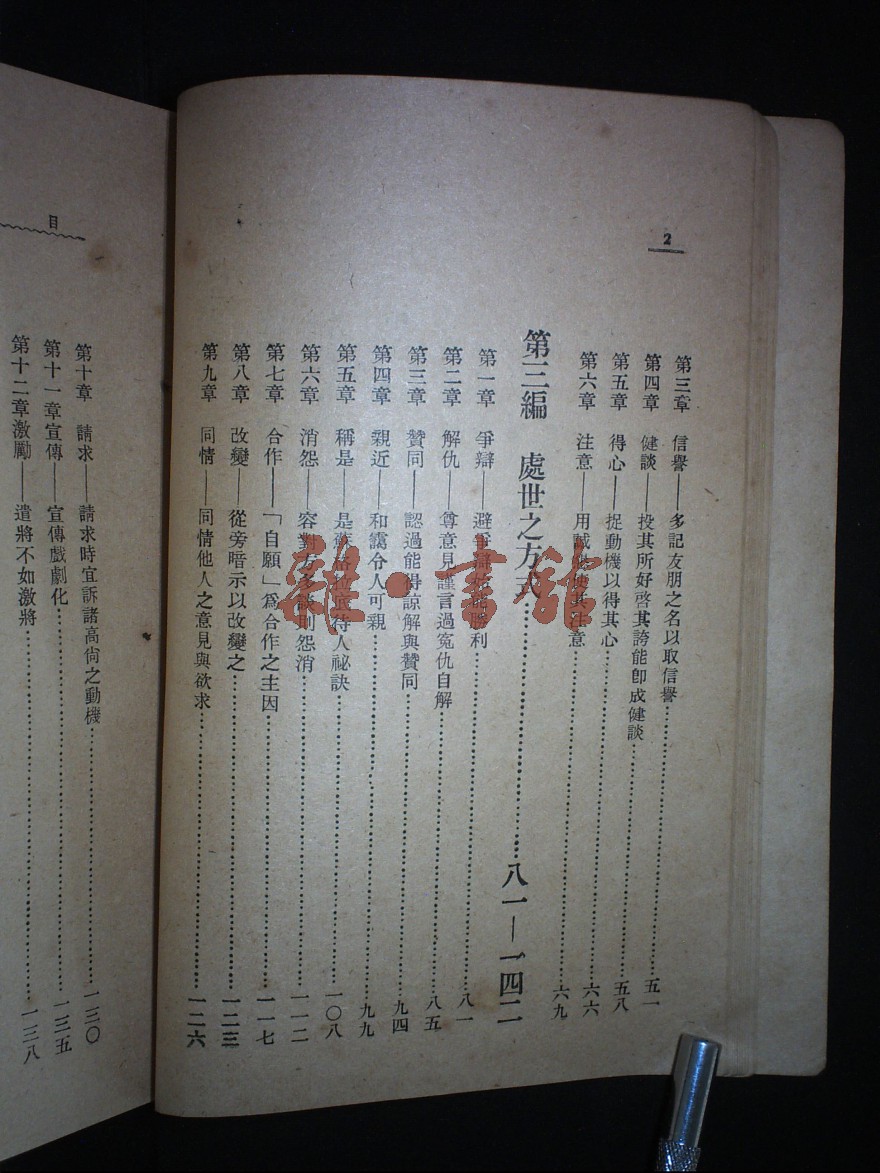 2
第三章　信譽——多記友朋之名以取信譽……五一
第四章　健談——投其所好啓其誇能卽成健談……五八
第五章　得心——捉動機以得其心……六六
第六章　注意——用使其注意……六九
第三編　處世之方式……八一—一四二
第一章　爭辯——避爭辯始能勝利……八一
第二章　解仇——尊意見謹言過冤仇自解……八五
第三章　贊同——認過能得諒解與贊同……九四
第四章　親近——和靄令人可親……九九
第五章　稱是——是蘇格拉底待人祕訣……一〇八
第六章　消怨——容對方多談則怨消……一一二
第七章　合作——「自願」爲合作之主因……一一七
第八章　改變——從旁暗示以改變之……一二三
第九章　同情——同情他人之意見與欲求……一二六
目
第十章　請求——請求時宜訴諸高尙之動機……一三〇
第十一章宣傳——宣傳戲劇化……一三五
第十二章激勵——遣將不如激將……一三八
雜·書館